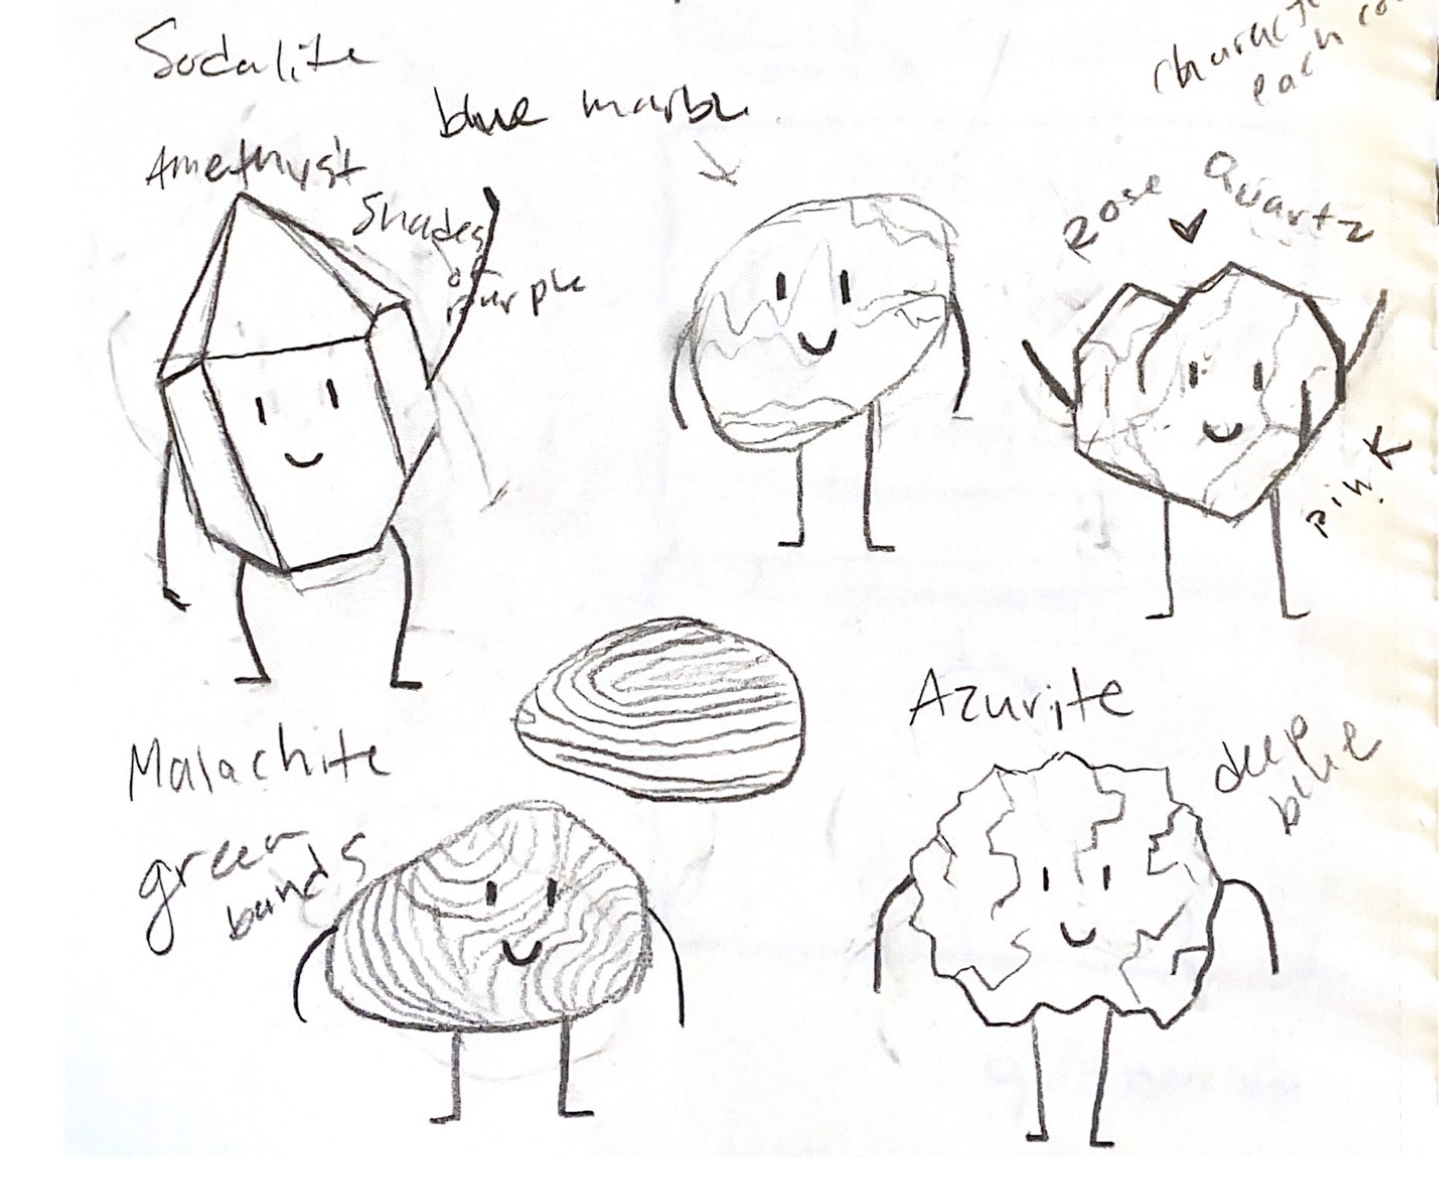 Sodalite
blue marble
Amethyst
shades
of
purple
each
Rose Quartz
pink
Malachite
green
bands
Azurite
deep
blue